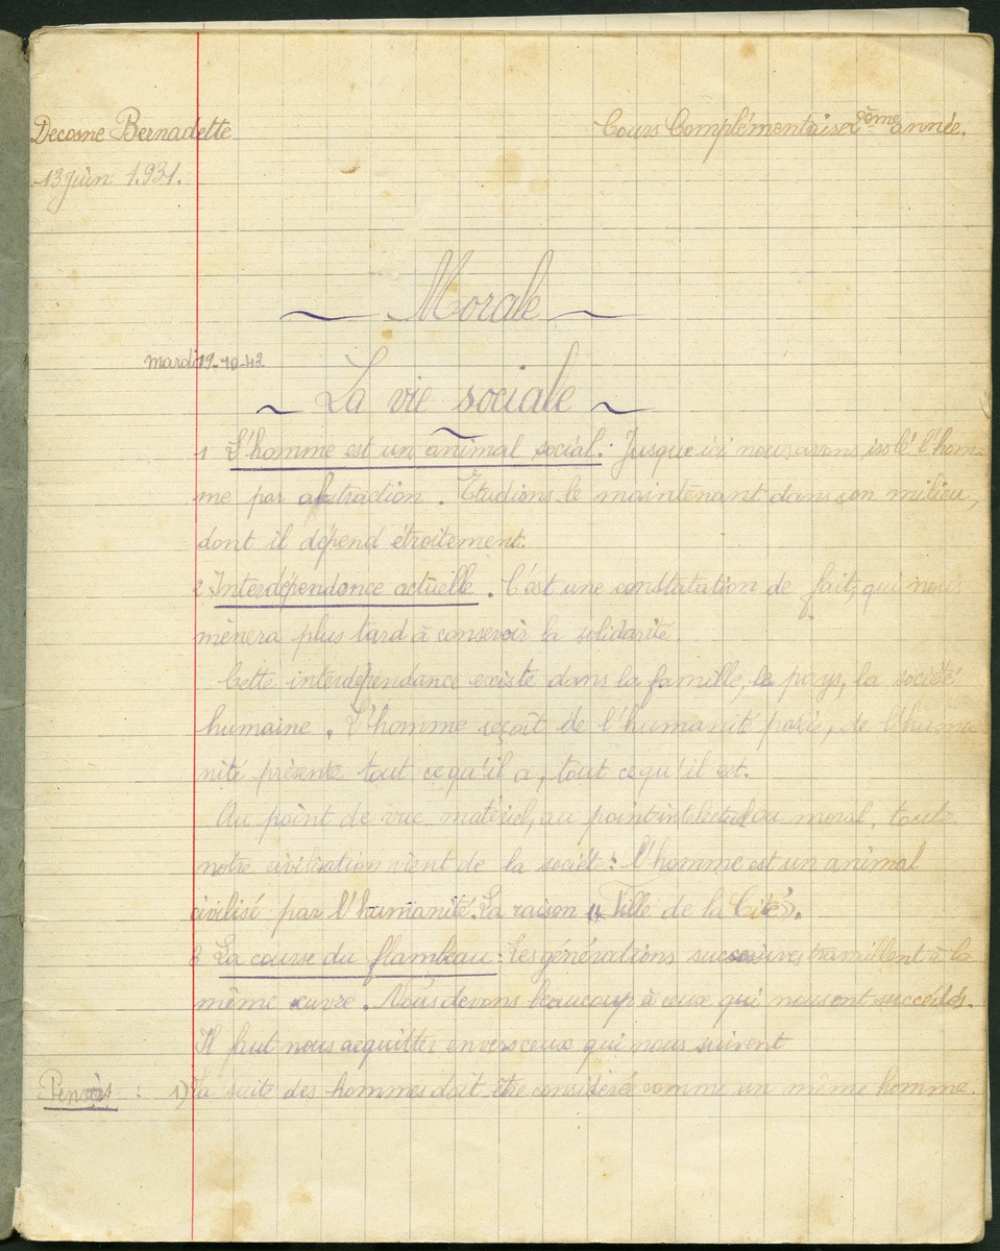 Decosne Bernadette
Cours Complémentaire 2ème année.
13 juin 1.931.
Morale
mardi 19-10-43.
La vie sociale
1 L'homme est un animal social : Jusque ici nous avons isolé l'hom-
me par abstraction. Etudions le maintenant dans son milieu,
dont il dépend étroitement.
2 Interdépendance actuelle. C'est une constatation de fait, qui nous
mènera plus tard à concevoir la solidarité.
Cette interdépendance existe dans la famille, le pays, la société
humaine. L'homme reçoit de l'humanité passée, de l'huma-
nité présente tout ce qu'il a, tout ce qu'il est.
Au point de vue matériel, au point intellectuel ou moral, toute
notre civilisation vient de la société : l'homme est un animal
civilisé par l'humanité. La raison « Fille de la Cité ».
3 La course du flambeau : Les générations successives travaillent à la
même œuvre. Nous devons beaucoup à ceux qui nous ont succédés.
Il faut nous acquitter envers ceux qui nous suivent
Pensées : 1) La suite des hommes doit être considérée comme un même homme.